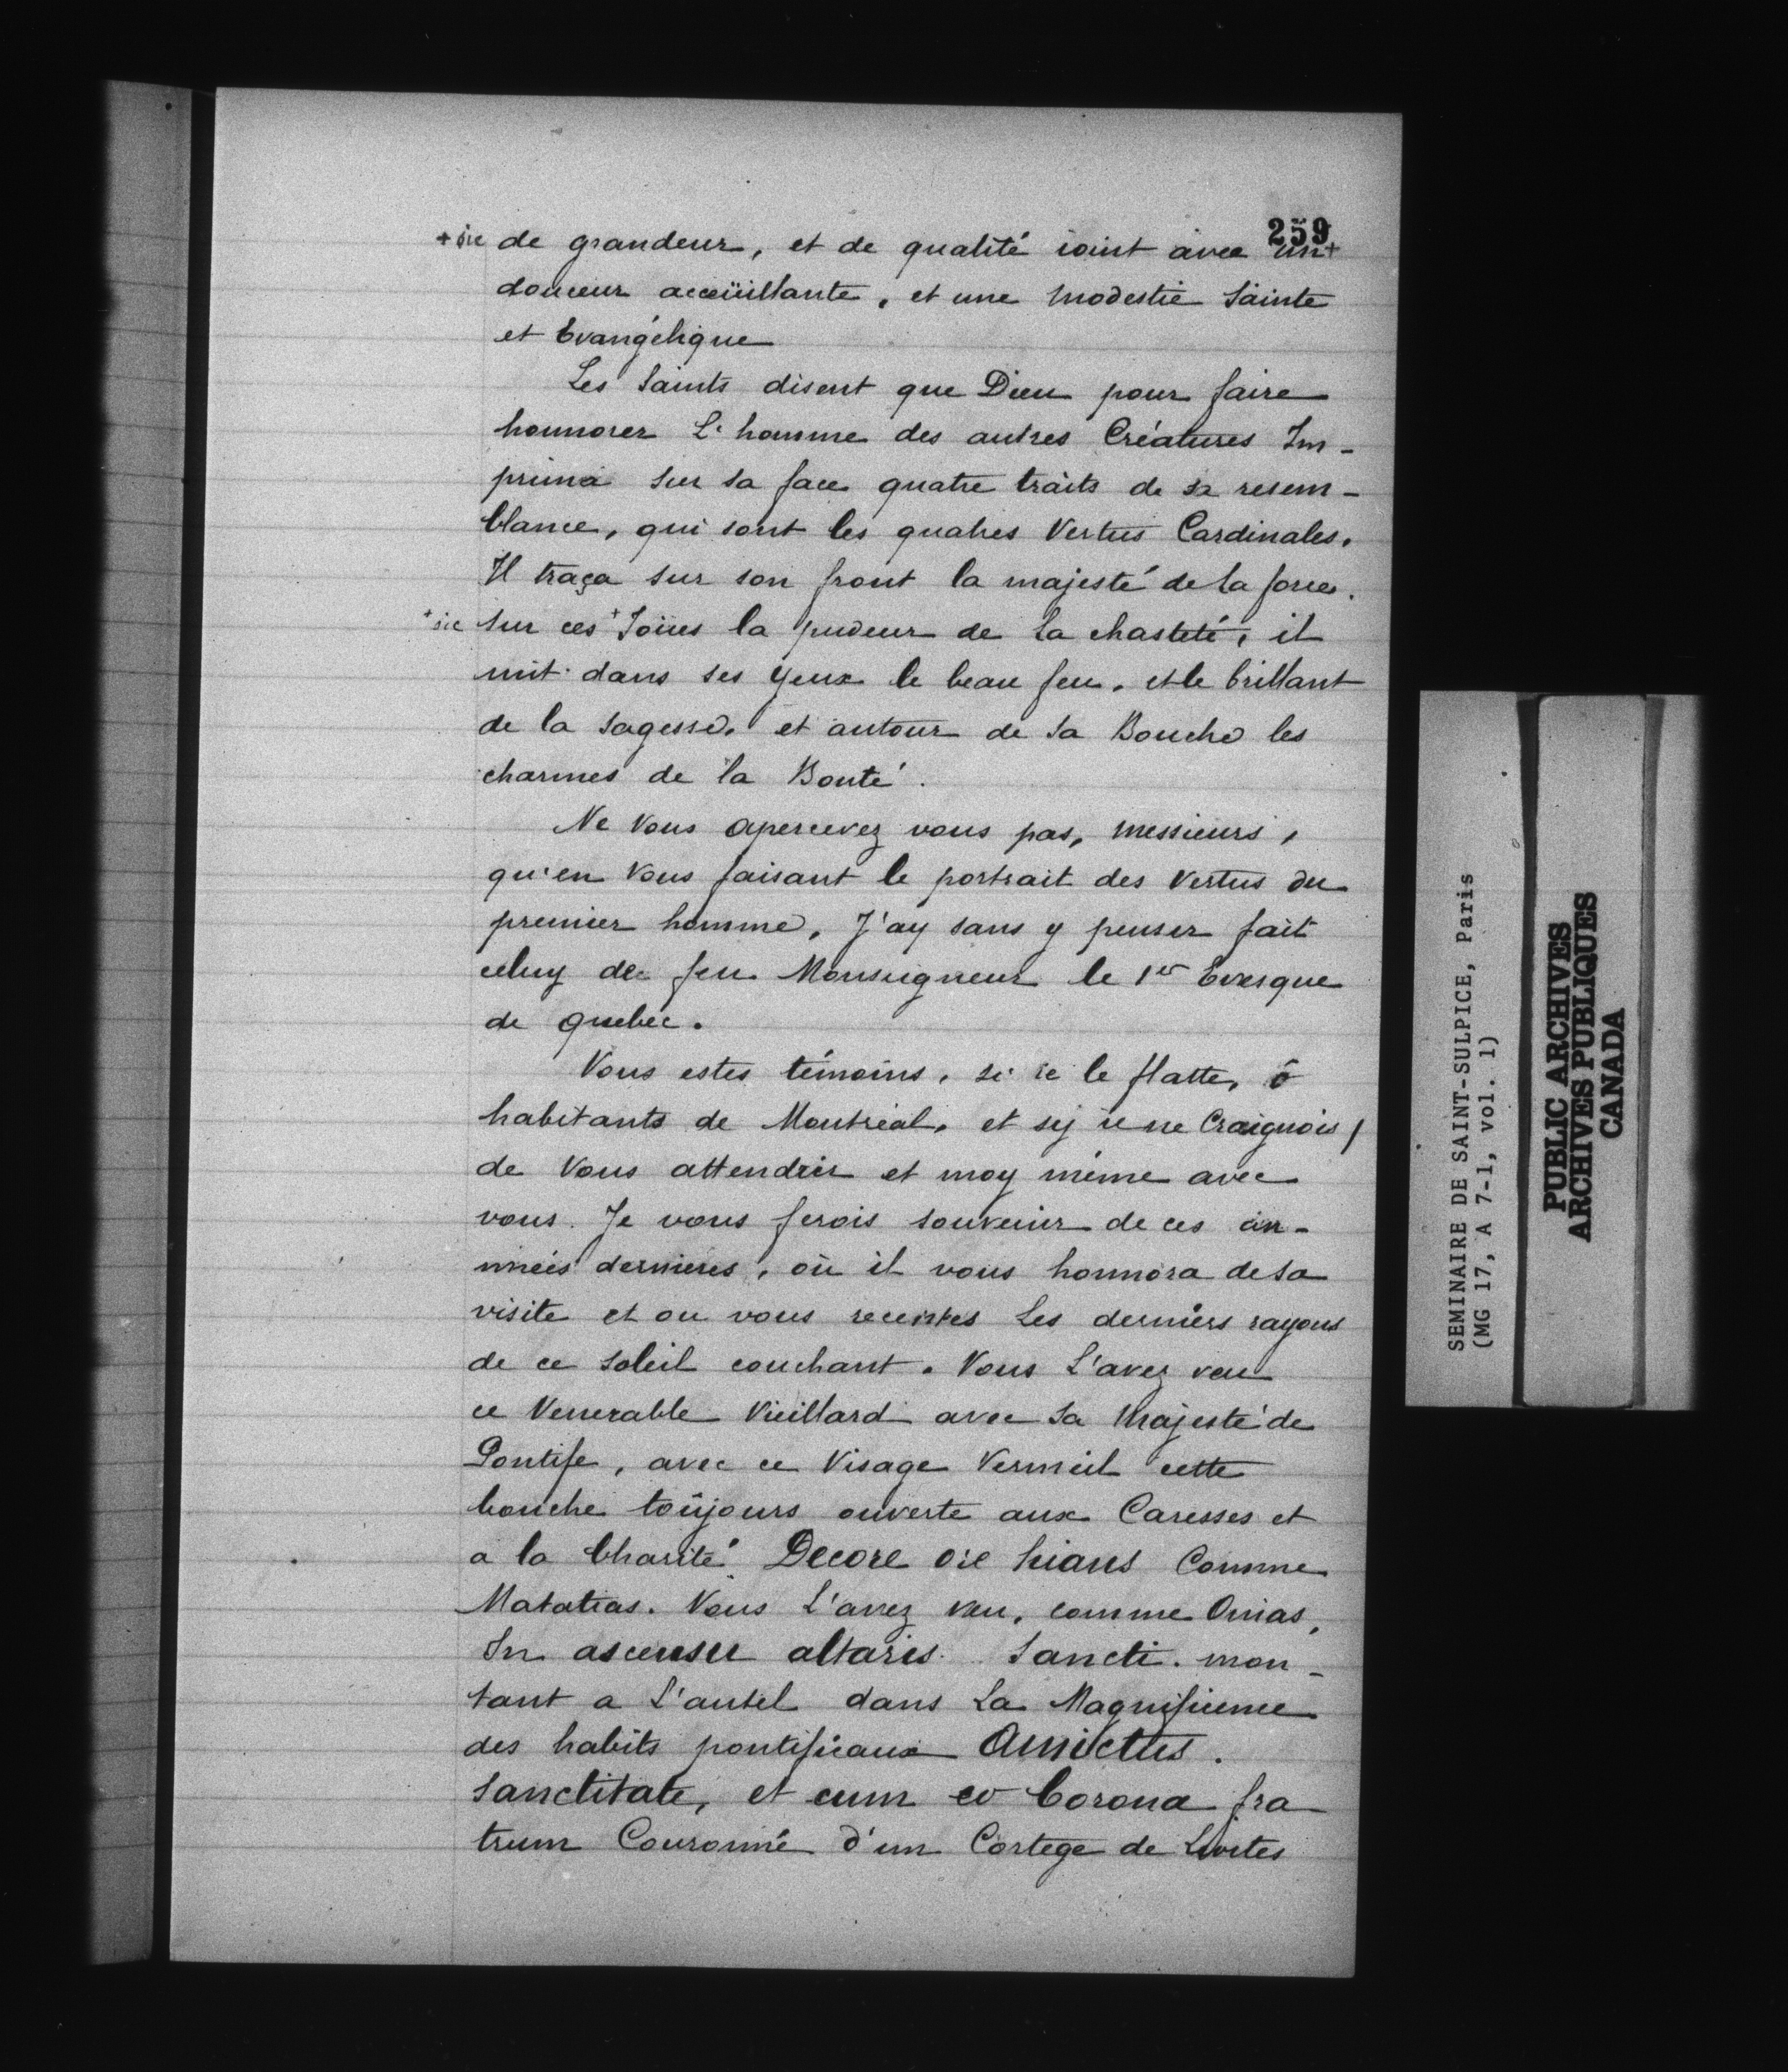 259
+ sic de grandeur, et de qualité ioint avec un+
douceur acceüillante, et une modestie sainte
et Evangélique
Les Saints disent que Dieu pour faire
honnorer L'homme des autres Créatures Im-
prima sur sa face quatre traits de sa resem-
blance, qui sont les quatres Vertus Cardinales.
Il traça sur son front la majesté de la force.
+ sic sur ces + Joües la pudeur de la chasteté, il
mit dans ses yeux le beau feu, et le brillant
de la sagesse, et autour de sa Bouche les
charmes de la Bonté.
Ne vous apercevez vous pas, messieurs,
qu'en vous faisant le portrait des vertus du
premier homme, J'ay sans y penser fait
celuy de feu Monseigneur le 1er Evesque
de quebec.
Vous estes témoins, si ie le flatte, ô
habitants de Montréal, et sy ie ne Craignois
de vous attendrir et moy même avec
vous. Je vous ferois souvenir de ces an-
nnées dernieres, où il vous honnora de sa
visite et ou vous receutes les derniers rayons
de ce soleil couchant. Vous L'avez veu
ce Venerable Vieillard avec sa Majesté de
Pontife, avec ce Visage Vermeil cette
bouche toûjours ouverte aux Caresses et
a la Charité. Decore ore hians Comme
Matatias. Vous L'avez veu, comme Onias,
In ascensu altaris Sancti. mon-
tant a L'autel dans La Magnificence
des habits pontificaux Amictus.
Sanctitate, et cum eo Corona fra
trum Couronné d'un Cortege de Levites
SEMINAIRE DE SAINT-SULPICE, Paris
(MG 17, A 7-1, vol. 1)
PUBLIC ARCHIVES
ARCHIVES PUBLIQUES
CANADA